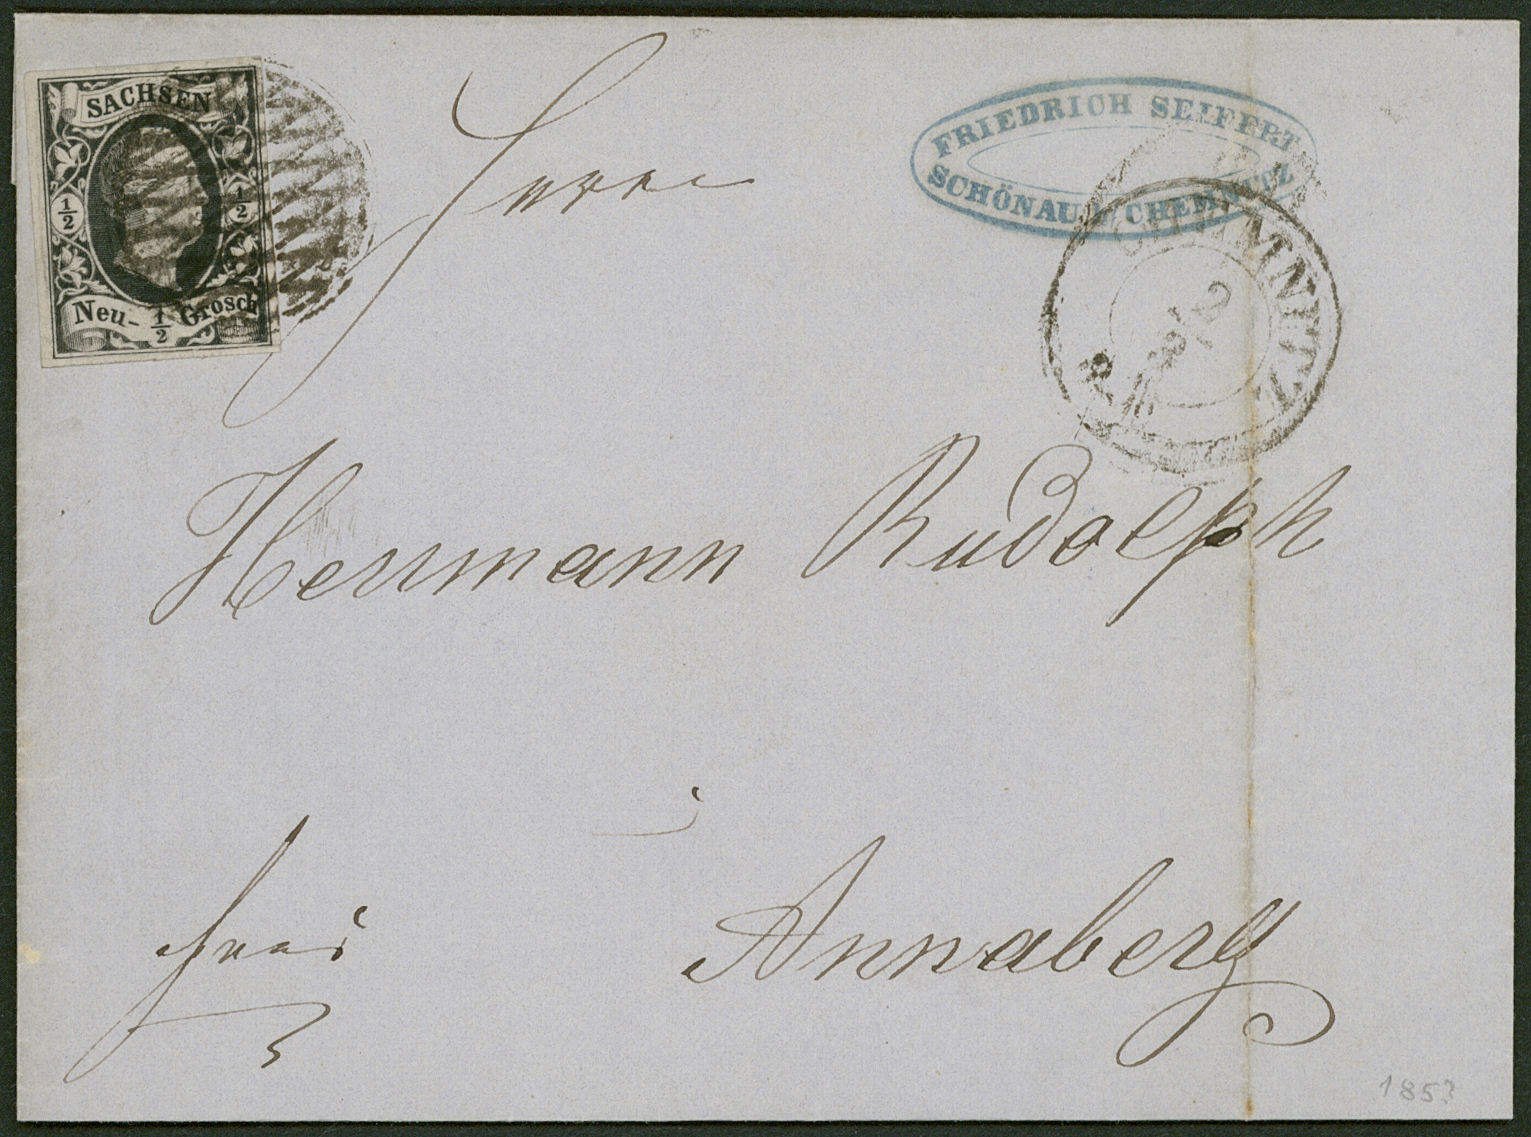 SACHSEN
1/2
1/2
Neu- 1/2 Grosch
FRIEDRICH SEIFERT
SCHÖNAU CHEMNITZ
CHEMNITZ
Herrn
Herrmann Rudolph
frei
Annaberg
1853